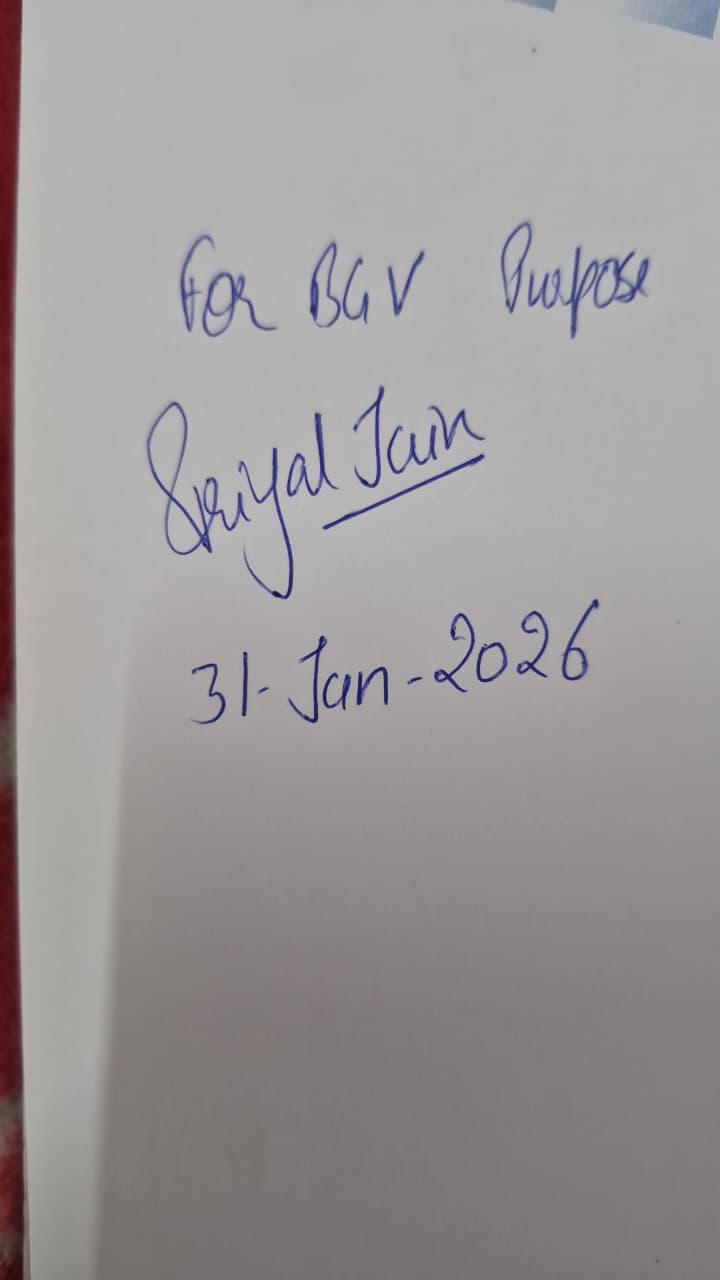 For BGV Purpose
Sriyal Jain
31-Jan-2026